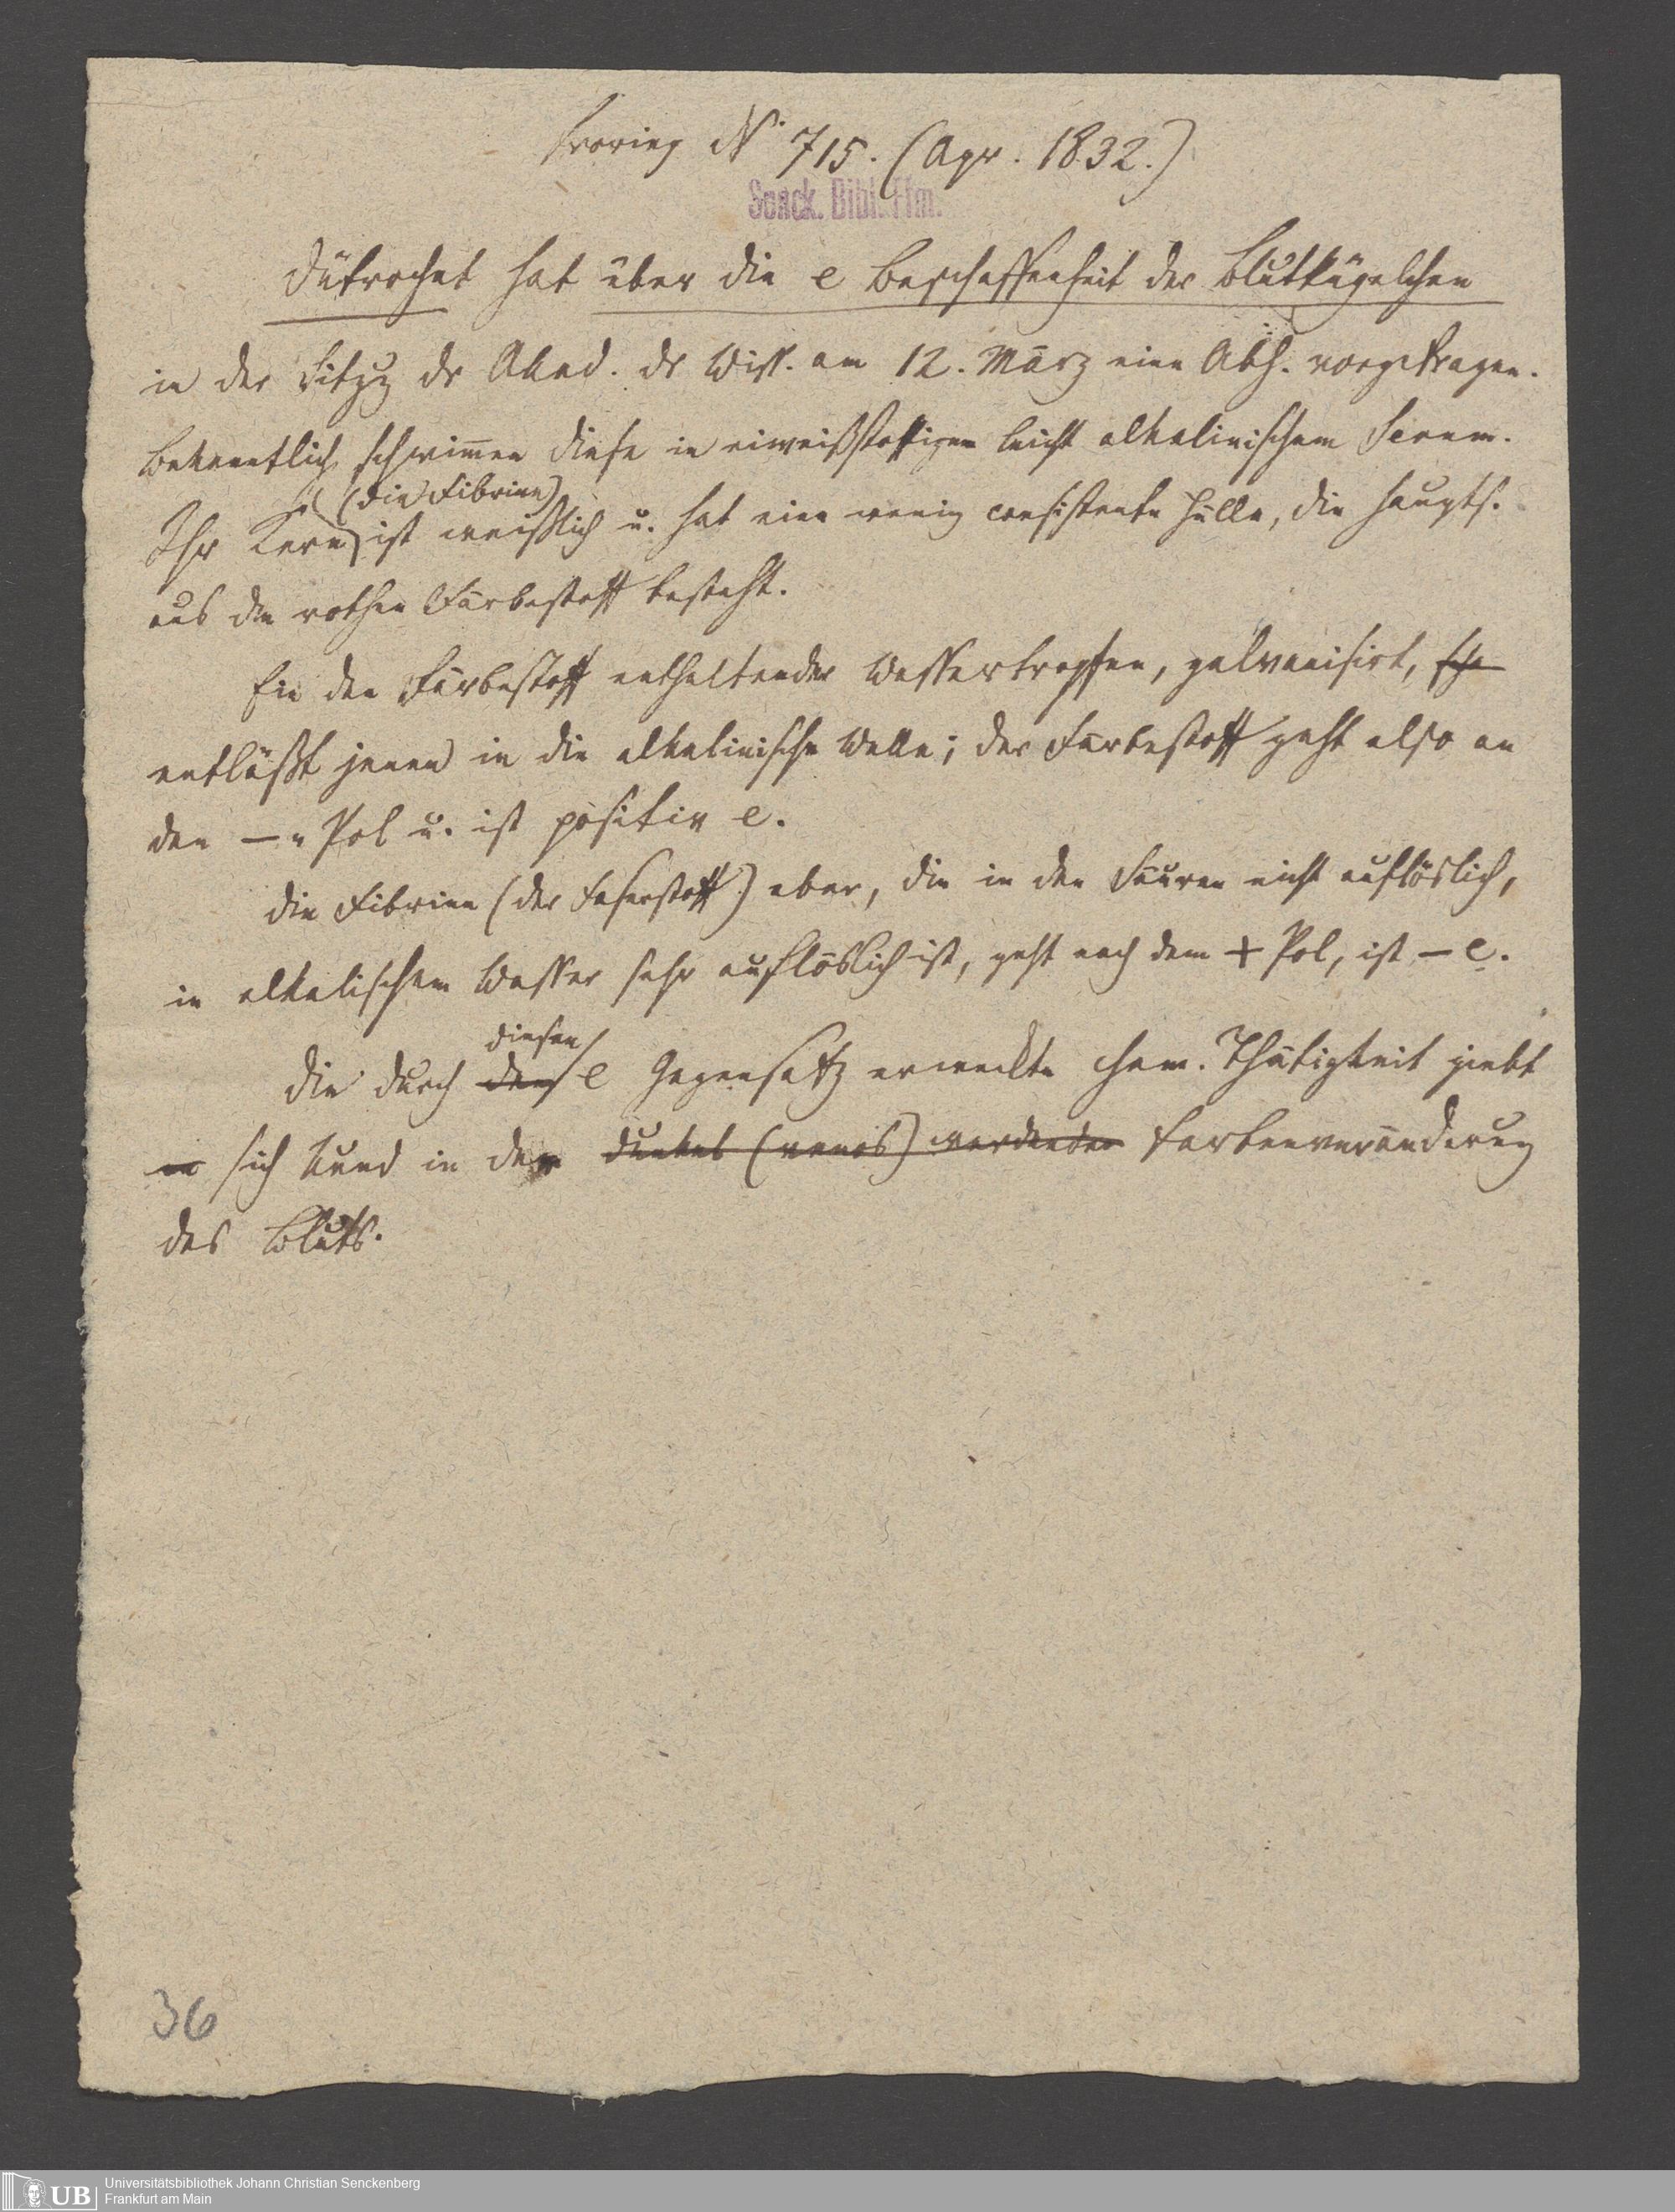 Froriep N. 715. (Apr. 1832.)
Senck. Bibl. Ffm.
Dütrochet hat über die e Beschaffenheit der Blutkügelchen
in der Sitzg dr Akad. dr Wiss. am 12. März eine Abh. vorgetragen.
Bekanntlich schwim̄en diese in eiweißstoffigem leicht alkalinischem Serum.
(die Fibrine)
Ihr Kern ist weißlich u. hat eine wenig consistente Hülle, die haupts.
aus dem rothen Färbestoff besteht.
Ein den Färbestoff enthaltender Wassertropfen, galvanisirt, sche
entläßt jenen in die alkalinische Welle; der Färbestoff geht also an
den — Pol u. ist positiv e.
Die Fibrine (der Faserstoff) aber, die in den Säuren nicht auflöslich,
in alkalischem Wasser sehr auflöslich ist, geht nach dem + Pol, ist – e.
diesen
Die durch den e Gegensatz erweckte chem. Thätigkeit giebt
sich kund in der dunkel (venos) werdenden Farbenveränderung
des Bluts.
36
UB Universitätsbibliothek Johann Christian Senckenberg
Frankfurt am Main